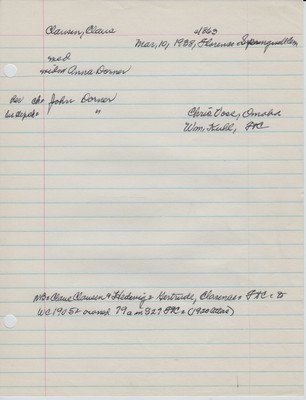 Clausen, Claus 1863
Mar, 10, 1938, Florence Springwell Cem
med
Anna Dorner
her ch= John Dorner
his dep ch= "
Chris Vose, Omaha
Wm. Kuhl, FtC
NB= Claus Clausen & Hedewig= Gertrude, Clarence= FtC= to
WC 1905= owned 79a in S27 FtC= (1920 Atlas)